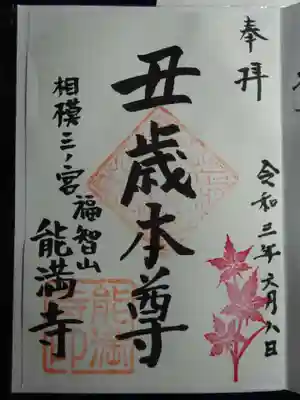 奉拝
令和三年六月八日
丑歳本尊
相模三ノ宮
福智山
能満寺
能満
寺印